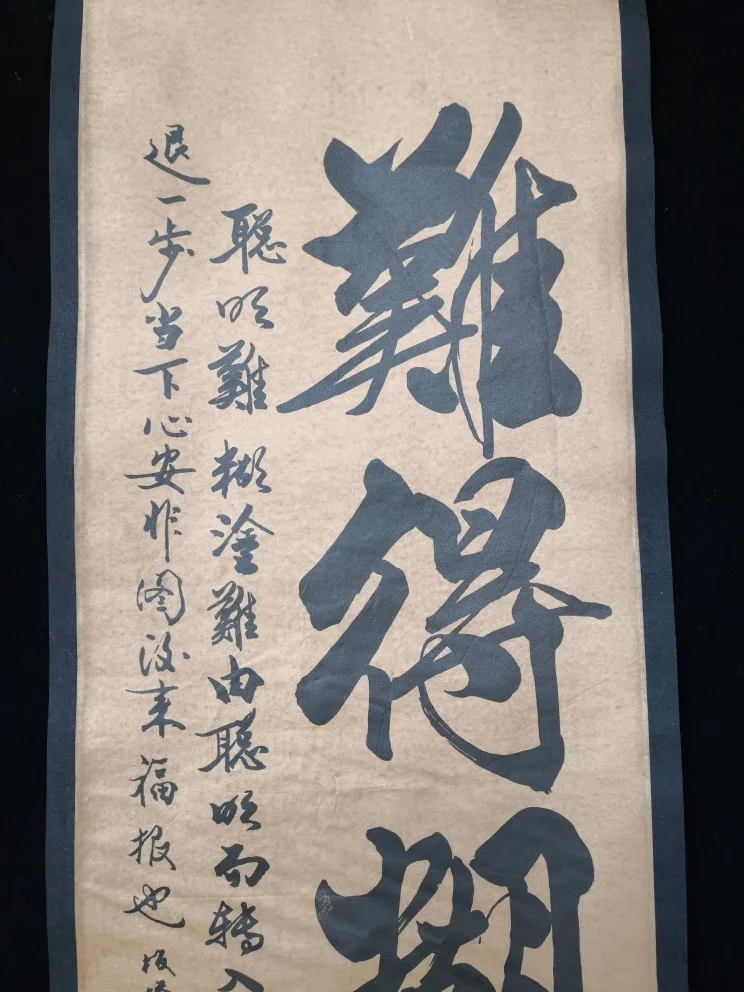 難得糊
聰明難糊塗難由聰明而轉入
退一步当下心安非图後来福报也板橋